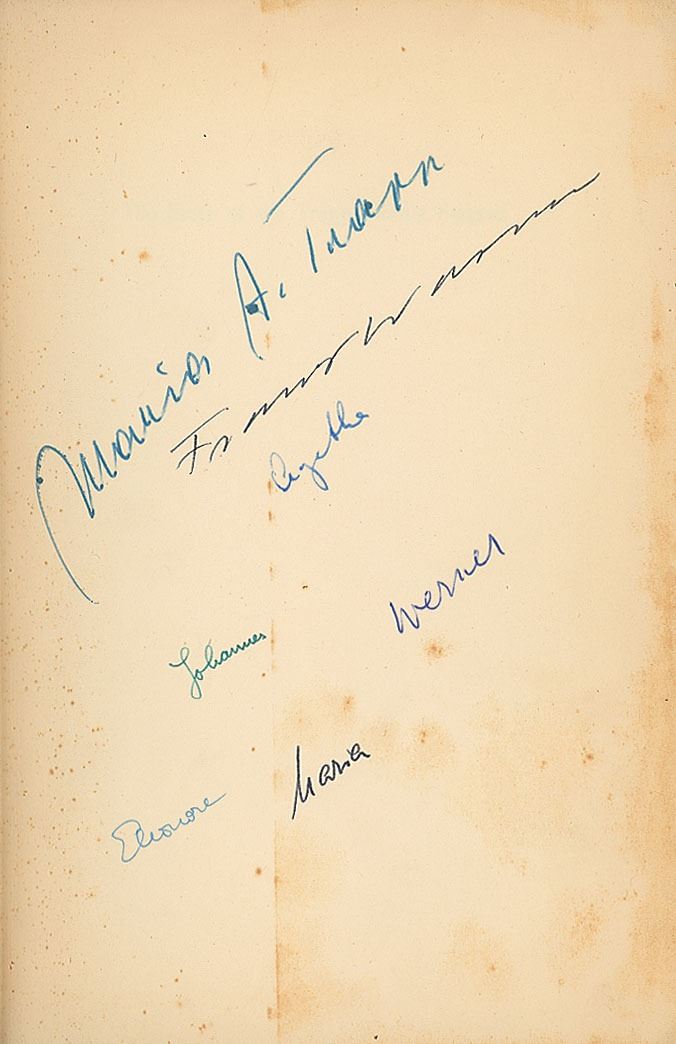 Maria A. Trapp
Franz Wasner
Agathe
Werner
Johannes
Maria
Eleonore